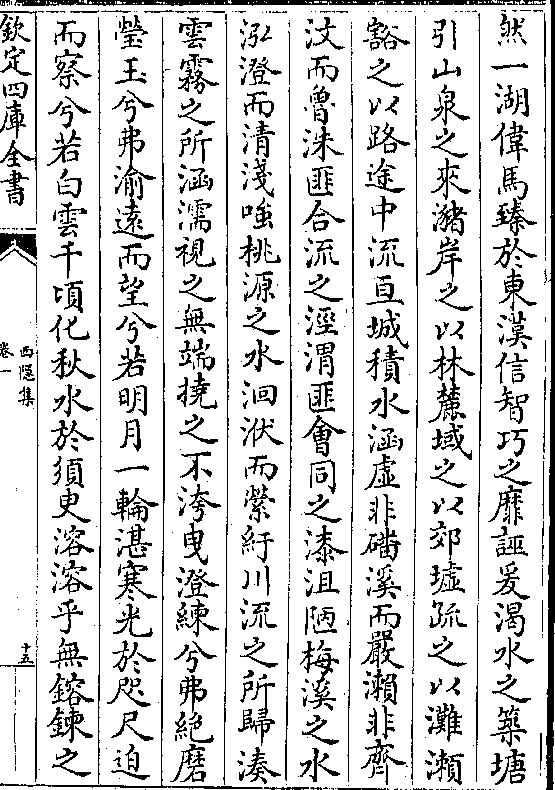 然一湖偉馬臻於東漢信智巧之靡誣爰渴水之築塘
引山泉之來瀦岸之以林麓域之以郊墟疏之以灘瀬
豁之以路途中流亘城積水涵虛非磻溪而嚴瀬非齊
汶而魯洙匪合流之涇渭匪會同之漆沮陋梅溪之水
泓澄而清淺嗤桃源之水洄洑而縈紆川流之所歸湊
雲霧之所涵濡視之無端撓之不洿曳澄練兮弗絶磨
瑩玉兮弗渝遠而望兮若明月一輪湛寒光於咫尺迫
而察兮若白雲千頃化秋水於須臾溶溶乎無鎔鍊之
欽定四庫全書
西隱集
卷一
十五